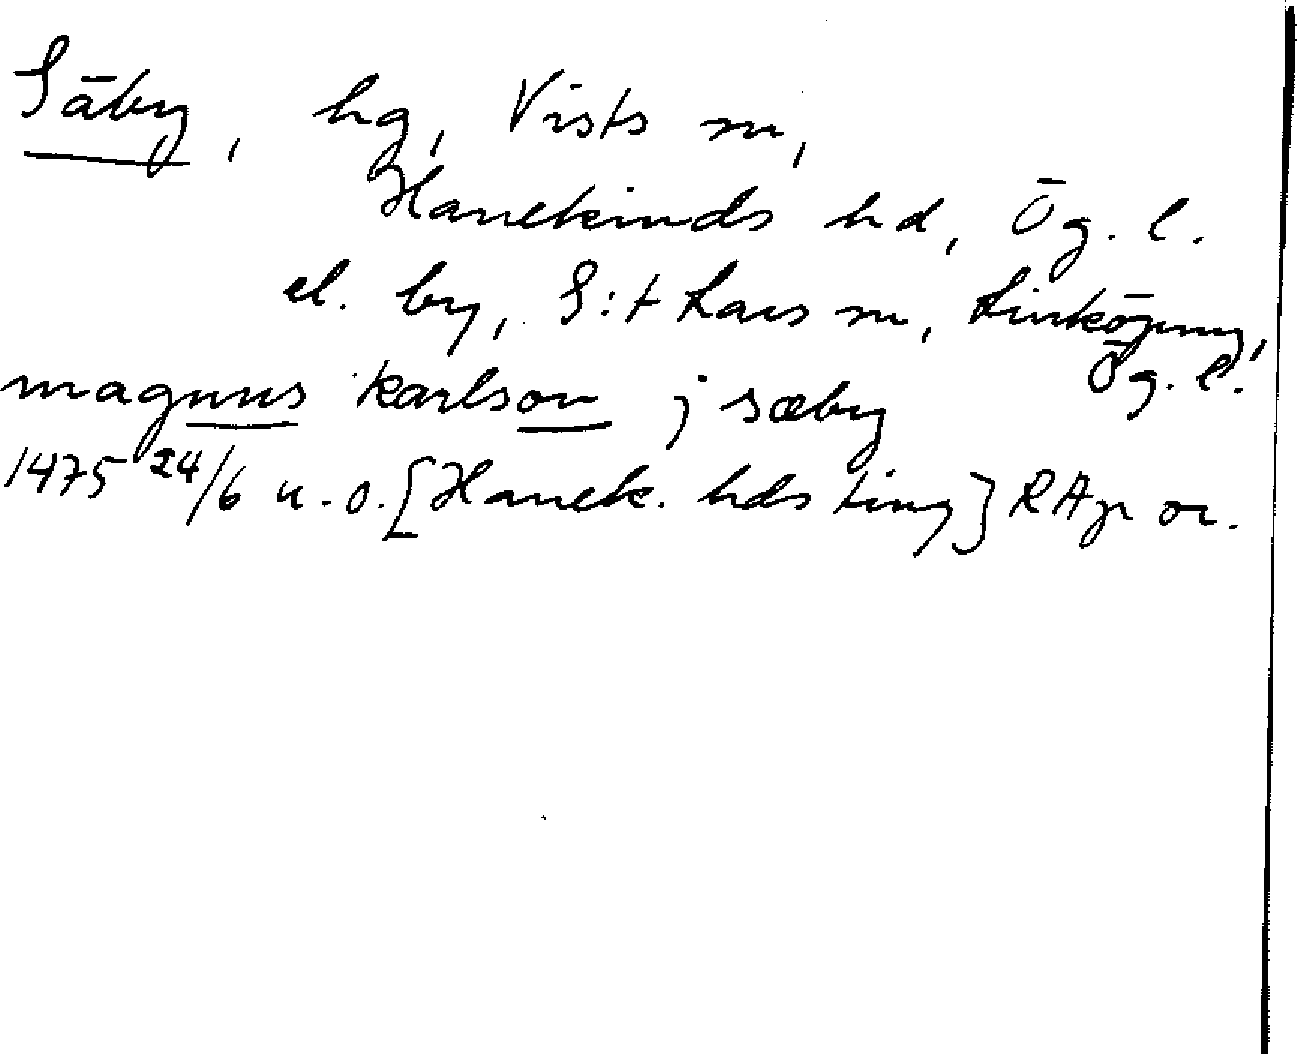 Säby, hg, Vists sn,
Hanekinds hd, Ög. l.
el. by, S:t Lars sn, Linköping,
Ög. l.
magnus karlson j sæby
1475 24/6 u. o. [Hanek. hds ting] RAp or.